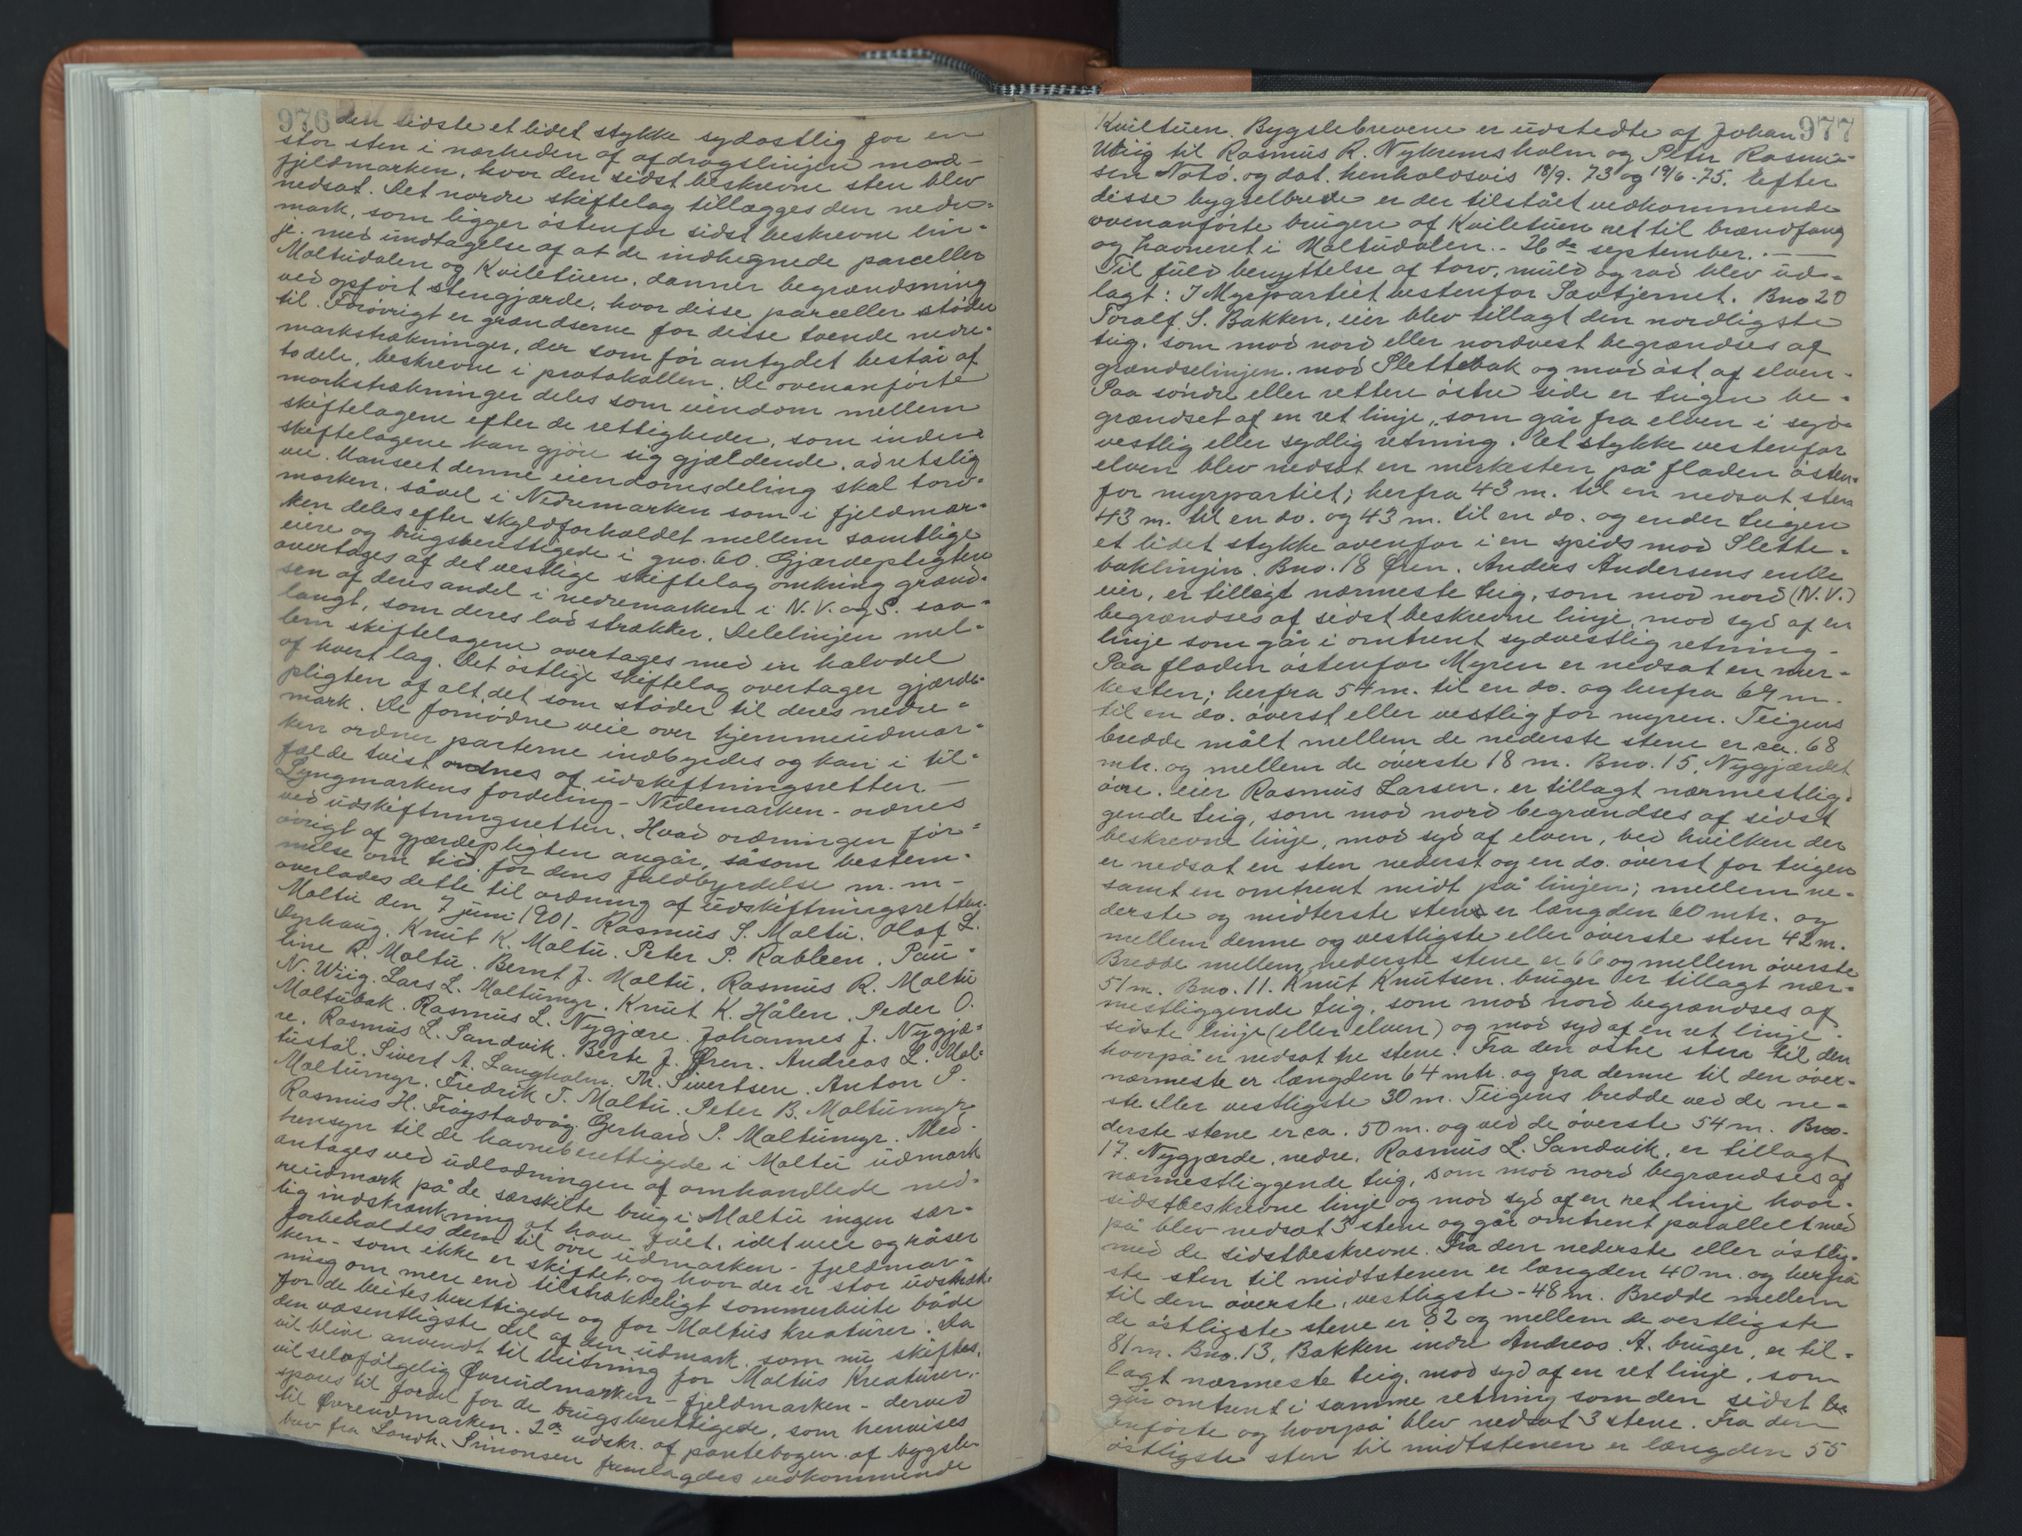 976
den sidste et lidet stykke sydøstlig for en
stor sten i nærheden af afdragslinjen mod-
fjeldmarken, hvor den sidst beskrevne sten blev
nedsat. Det nordre skiftelag tillægges den nedre-
mark, som ligger østenfor sidst beskrevne lin-
je, med undtagelse af at de indhegnede parceller
Maltudalen og Kviletuen, danner begrændsning
ved opført stengjærde, hvor disse parceller støder
til. Forøvrigt er grændserne for disse tvende nedre-
markstrækninger, der som før antydet består af
to dele, beskrevne i protokollen. De ovenanførte
markstrækninger deles som eiendom mellem
skiftelagene efter de rettigheder, som inden
skiftelagene kan gjøre sig gjældende, ad retslig
vei. Uanseet denne eiendomsdeling skal torv-
marken, såvel i Nedremarken som i fjeldmar-
ken deles efter skyldforholdet mellem samtlige
eiere og brugsberettigede i gno. 60. Gjærdepligten
overtages af det vestlige skiftelag omkring grænd-
sen af deres andel i nedremarken i N. V. og S. saa-
langt, som deres lod strækker. Delelinjen mel-
lem skiftelagene overtages med en halvdel
af hvert lag. Det østlige skiftelag overtager gjærde-
pligten af alt det som støder til deres nedre-
mark. De fornødne veie over hjemmeudmar-
ken ordner parterne indbyrdes og kan i til-
fælde tvist ordnes af udskiftningsretten. -
Lyngmarkens fordeling - Nedemarken - ordnes
ved udskiftningsretten. Hvad ordningen for-
øvrigt af gjærdepligten angår, såsom bestem-
melse om tid for dens fuldbyrdelse m. m -
overlades dette til ordning af udskiftningsretten.
Maltu den 7 juni 1901. Rasmus S. Maltu. Olaf L.
Dyrhaug. Knut K. Maltu. Peter P. Rableen. Pau-
line R. Maltu. Bernt J. Maltu. Rasmus R. Maltu
N. Wiig. Lars L. Maltumyr. Knut K. Hålen. Peder O.
Maltubak. Rasmus L. Nygjære. Johannes J. Nygjæ-
re. Rasmus L. Sandvik. Berte J. Øren. Andreas L. Mal-
tustøl. Sivert A. Langholm. Th. Sivertsen. Anton P.
Maltumyr. Fredrik T. Maltu. Peter B. Maltumyr.
Rasmus H. Frøystadvåg. Gerhard P. Maltumyr. Med-
hensyn til de havneberettigede i Maltu udmark
antages ved udlodningen af omhandlede ned-
reudmark på de særskilte brug i Maltu ingen sær-
lig indskrænkning at have fået, idet veie og råser
forbeholdes dem til øvre udmarken - fjeldmar-
ken - som ikke er skiftet, og hvor der er stor udstræk-
ning om mere end tilstrækkeligt sommerbeite både
for de beitesberettigede og for Maltus kreaturer. Da
den væsentligste del af den udmark, som nu skiftes,
vil blive anvendt til beitning for Maltus kreaturer,
vil selvfølgelig Øvreudmarken - fjeldmarken - derved
spares til fordel for de brugsberettigede, som henvises
til Øvreudmarken. 2de udskr. af pantebogen af bygsle-
brev fra Landh. Simonsen fremlagdes vedkommende
977
Kviltuen. Bygslebrevene er udstedte af Johan
Wiig til Rasmus R. Nykremsholm og Peter Rasmu-
sen Notø. og dat. henholdsvis 18/9. 73 og 19/6. 75. Efter
disse bygselbrede er der tilstået vedkommende
ovenanførte brugere af Kviletuen ret til brændfang
og havneret i Maltudalen. - 26de september. -
Til fuld benyttelse af torv, muld og rod blev ud-
lagt: I Myrpartiet vestenfor Sævtjernet. Bno 20
Toralf S. Bakken, eier blev tillagt den nordligste
teig. som mod nord eller nordvest begrændses af
grændselinjen mod Slettebak og mod øst af elven.
Paa søndre eller rettere østre side er teigen be-
grændset af en ret linje, som går fra elven i syd-
vestlig eller sydlig retning. Et stykke vestenfor
elven blev nedsat en merkesten på fladen østen-
for myrpartiet; herfra 43 m. til en nedsat sten
43 m. til en do. og 43 m. til en do. og ender teigen
et lidet stykke ovenfor i en spids mod Slette-
baklinjen. Bno. 18 Øren. Anders Andersens enke
eier, er tillagt nærmeste teig, som mod nord (N.V.)
begrændses af sidst beskrevne linje, mod syd af en
linje som går i omtrent sydvestlig retning -
Paa fladen østenfor Myren er nedsat en mer-
kesten; herfra 54 m. til en do. og herfra 64 m.
til en do. øverst eller vestlig for myren. Teigens
bredde målt mellem de nederste stene er ca. 68
mtr. og mellem de øverste 18 m. Bno. 15, Nygjærdet
øvre. eier Rasmus Larsen. er tillagt nærmestlig-
gende teig, som mod nord begrændses af sidst
beskrevne linje, mod syd af elven, ved hvilken der
er nedsat en sten nederst og en do. øverst for teigen
samt en omtrent midt på linjen; mellem ne-
derste og midterste sten er længden 60 mtr. og
mellem denne og vestligste eller øverste sten 42 m.
Bredde mellem nederste stene er 66 og mellem øverste
51 m. Bno. 11. Knut Knutsen. bruger er tillagt nær-
mestliggende teig, som mod nord begrændses af
sidste linje (eller elven) og mod syd af en ret linje.
hvorpå er nedsat tre stene. Fra den østre sten til den
nærmeste er længden 64 mtr. og fra denne til den øver-
ste eller vestligste 30 m. Teigens bredde ved de ne-
derste stene er ca. 50 m. og ved de øverste 54 m. Bno.
17. Nygjærde, nedre, Rasmus L. Sandvik. er tillagt
nærmestliggende teig, som mod nord begrændses af
sidstbeskrevne linje og mod syd af en ret linje hvor-
på blev nedsat 3 stene og går omtrent parallelt med
med de sidstbeskrevne. Fra den nederste eller østlig-
ste sten til midtstenen er længden 40 m. og herfra
til den øverste, vestligste - 48 m. Bredde mellem
de østligste stene er 82 og mellem de vestligste
81 m. Bno. 13, Bakken indre Andreas A. bruger, er til-
lagt nærmeste teig. mod syd af en ret linje, som
går omtrent i samme retning som den sidst be-
anførte og hvorpå blev nedsat 3 stene. Fra den
østligste sten til midtstenen er længden 55